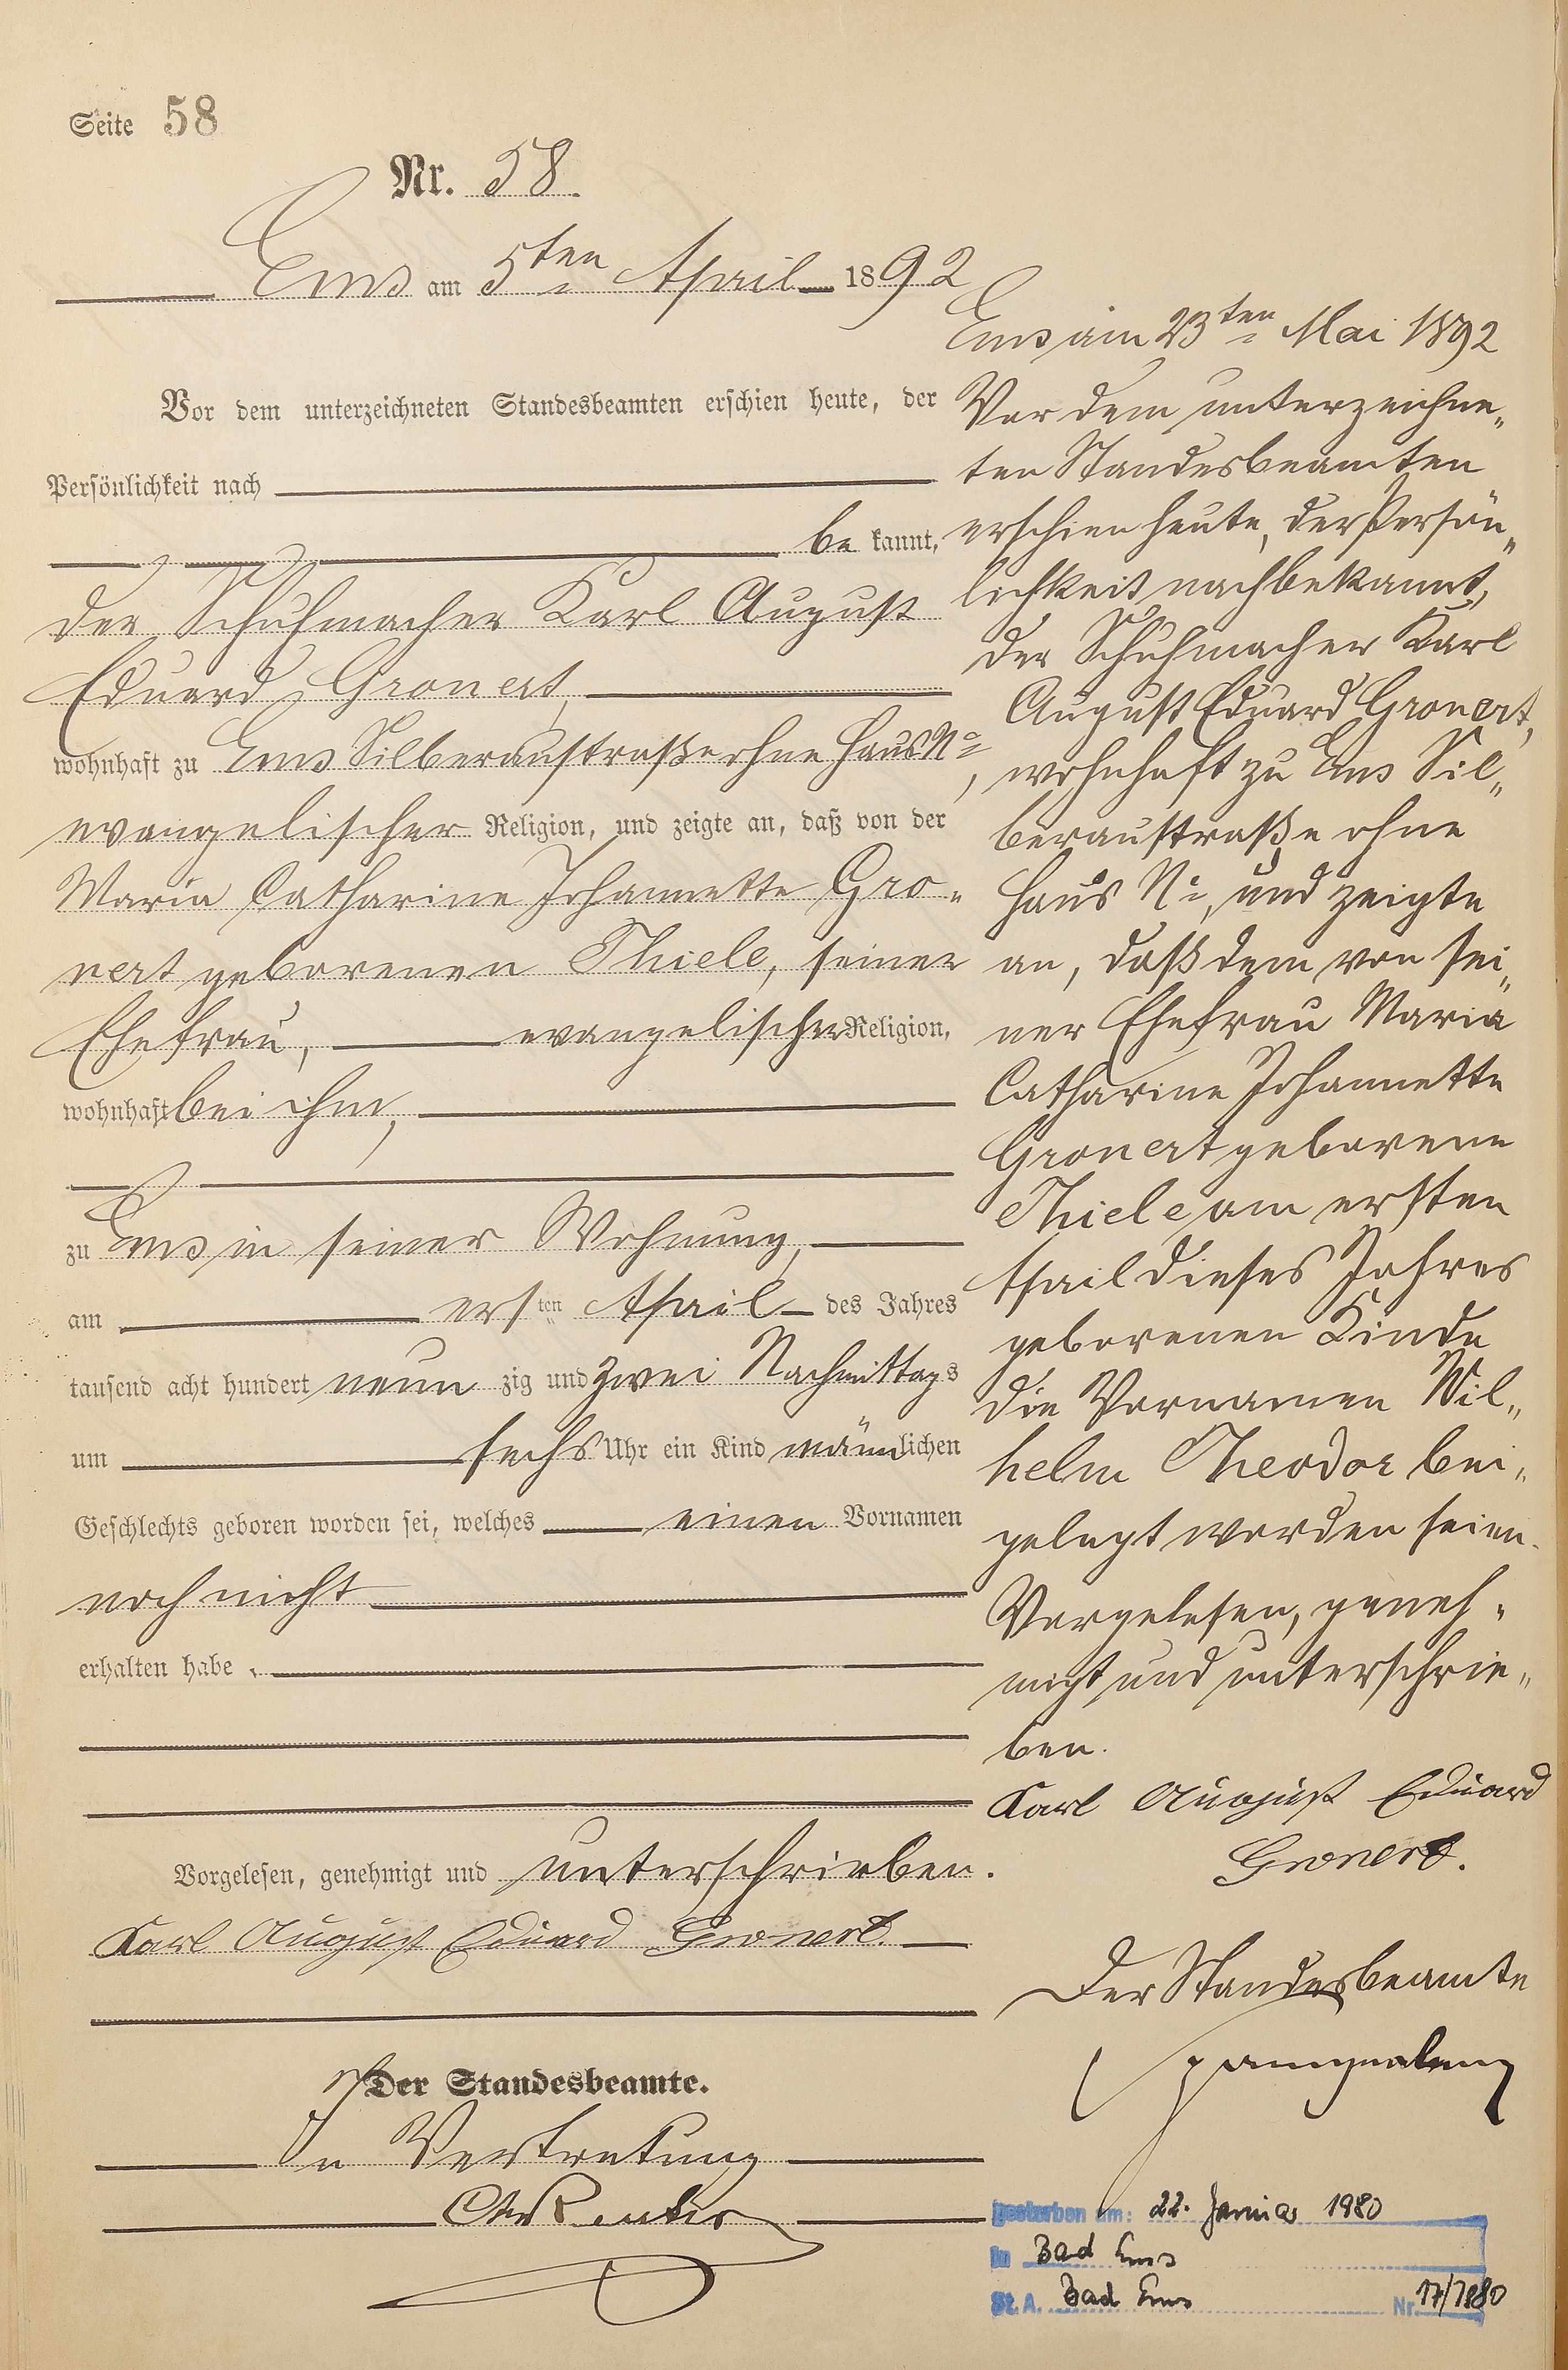 Seite 58
Nr. 58.
Ems am 5ten April 1892
Vor dem unterzeichneten Standesbeamten erschien heute, der
Persönlichkeit nach
be kannt,
der Schuhmacher Karl August
Eduard Gronert,
wohnhaft zu Ems Silberaustraße ohne Haus No,
evangelischer Religion, und zeigte an, daß von der
Maria Catharine Johannette Gro-
nert geborenen Thiele, seiner
Ehefrau, evangelischer Religion,
wohnhaft bei ihm,
zu Ems in seiner Wohnung,
am ersten April des Jahres
tausend acht hundert neun zig und zwei Nachmittags
um sechs Uhr ein Kind männlichen
Geschlechts geboren worden sei, welches einen Vornamen
noch nicht
erhalten habe.
Vorgelesen, genehmigt und unterschrieben.
Karl August Eduard Gronert.
Der Standesbeamte.
In Vertretung
Ems am 23ten Mai 1892
Vor dem unterzeichne„
ten Standesbeamten
erschien heute, der Persön„
lichkeit nach bekannt,
der Schuhmacher Karl
August Eduard Gronert,
wohnhaft zu Ems Sil„
beraustraße ohne
Haus No, und zeigte
an, daß dem von sei„
ner Ehefrau Maria
Catharine Johannette
Gronert geborene
Thiele am ersten
April dieses Jahres
geborenen Kinde
die Vornamen Wil„
helm Theodor bei„
gelegt worden seien.
Vorgelesen, geneh„
migt und unterschrie„
ben.
Karl August Eduard
Gronert.
Der Standesbeamte
gestorben am: 22. Januar 1980
in Bad Ems
St. A. Bad Ems Nr. 17/1980